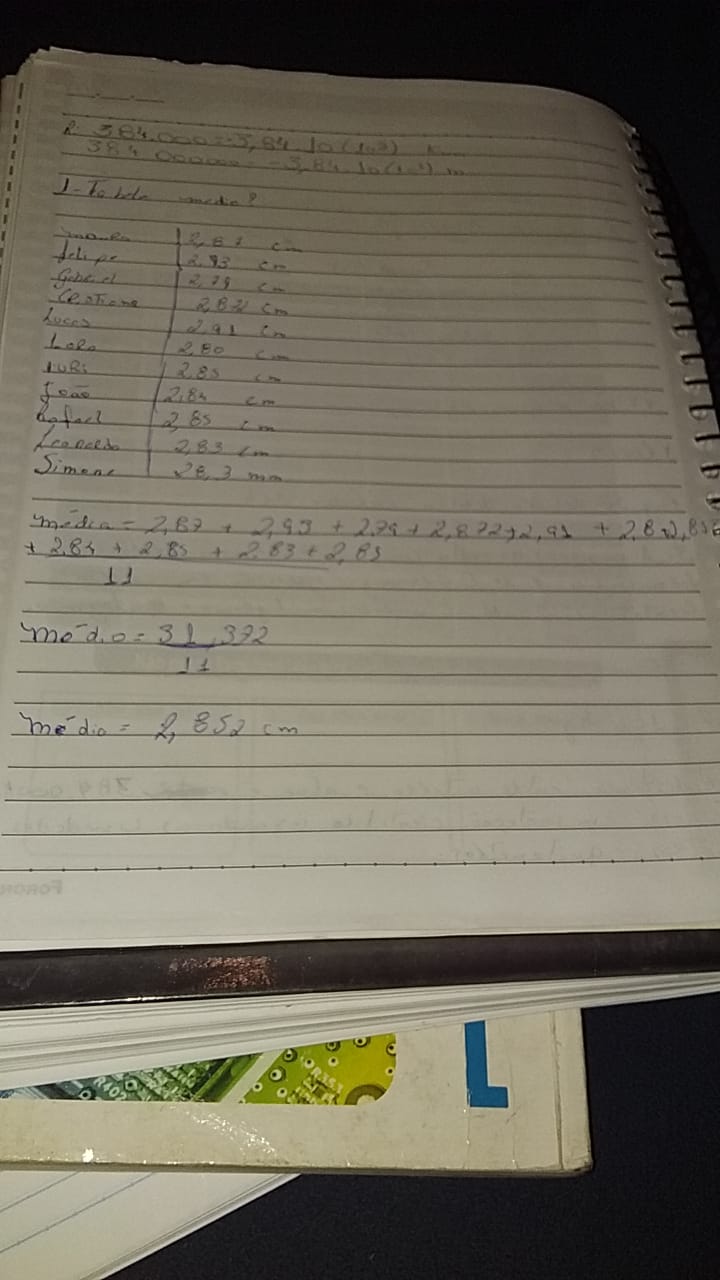 R: 384.000 = 3,84 . 10 Km
384 000000 = 3,84 . 10 m
1 - Tabela media?
2,87 cm
Felipe 2,93 cm
Gabriel 2,79 cm
Cristiane 2,872 cm
Lucas 2,91 cm
Lara 2,80 cm
IURI 2,85 cm
João 2,84 cm
Rafael 2,85 cm
Leonardo 2,83 cm
Simone 28,3 mm
média = 2,87 + 2,93 + 2,79 + 2,872 + 2,91 + 2,8 + 2,85
+ 2,84 + 2,85 + 2,83 + 2,83
11
médio = 31,372
11
médio = 2,852 cm
R402